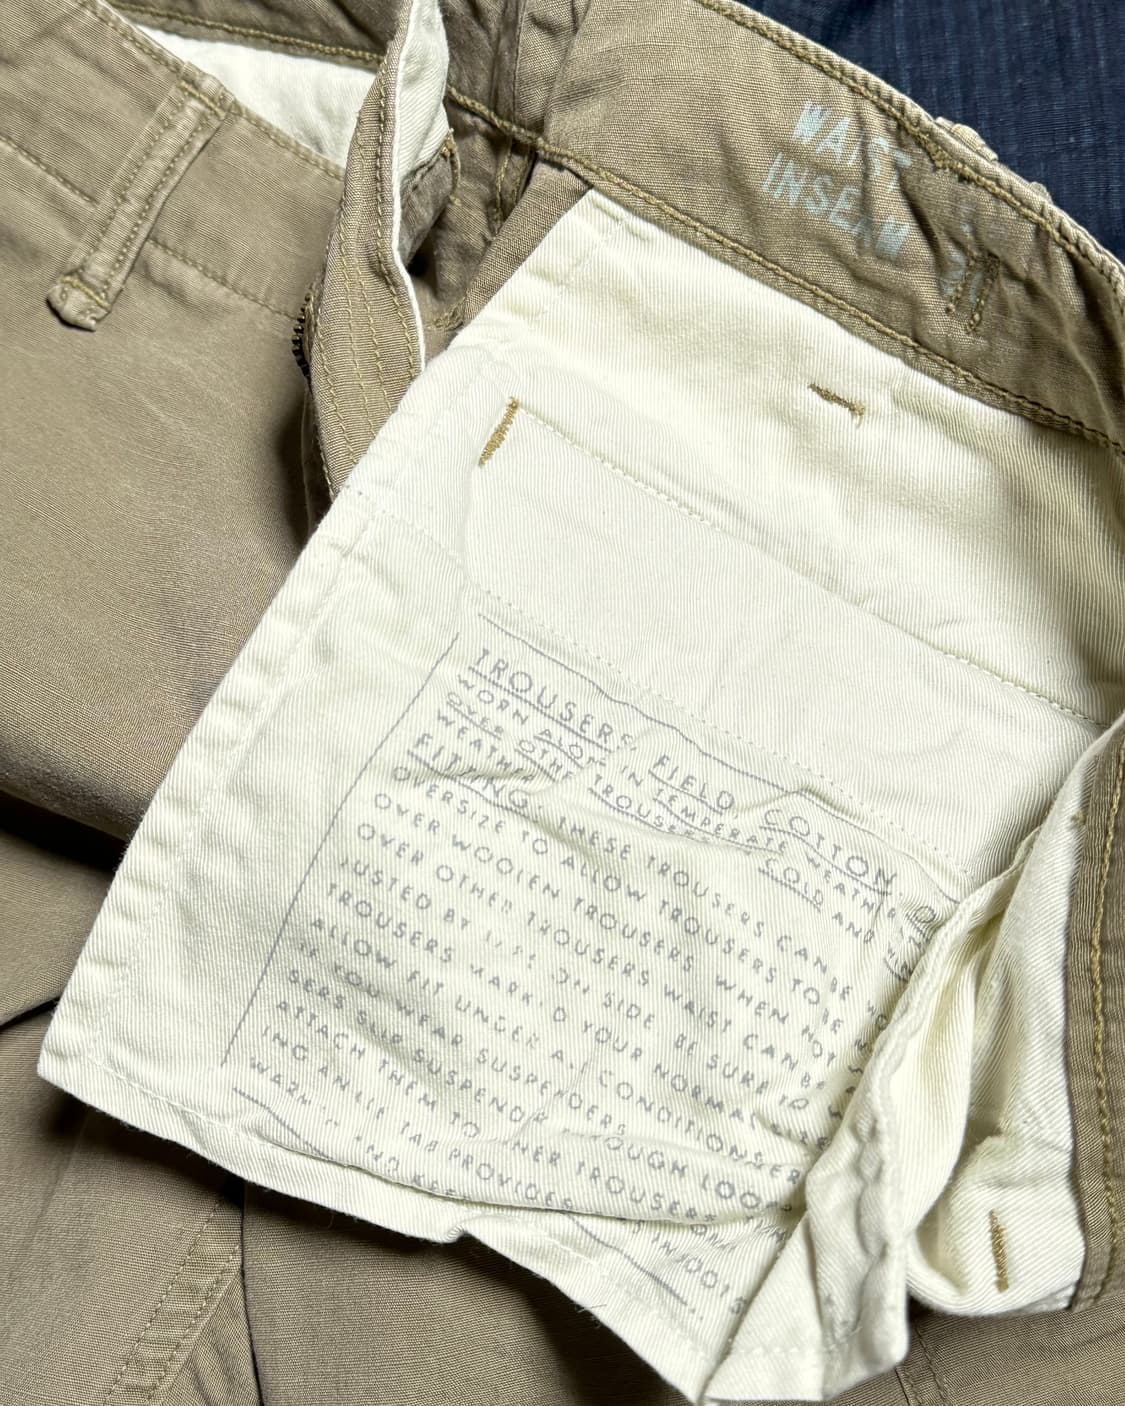 WAIST
INSEAM
TROUSERS, FIELD, COTTON.
WORN ALONE IN TEMPERATE WEATHER
OVER OTHER TROUSERS IN COLD AND
WEATHER
FITTING. THESE TROUSERS CAN BE
OVERSIZE TO ALLOW TROUSERS TO BE
OVER WOOLEN TROUSERS WHEN NOT
OVER OTHER TROUSERS WAIST CAN BE
JUSTED BY ON SIDE. BE SURE TO
TROUSERS MARKED YOUR NORMAL SIZE
ALLOW FIT UNDER ALL CONDITIONS
IF YOU WEAR SUSPENDERS
SERS SLIP SUSPENDER THROUGH LOOPS
ATTACH THEM TO INNER TROUSERS
ING ANKLE TAB PROVIDES
WARM AND KEEP IN BOOTS